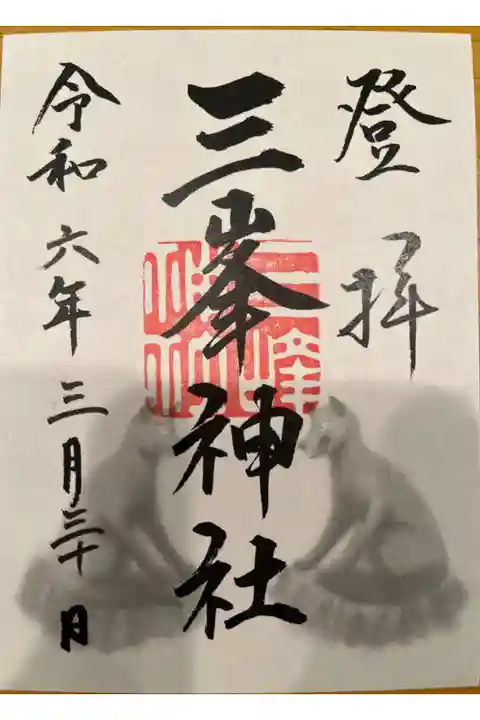 登拝
三峯神社
令和六年三月三十日